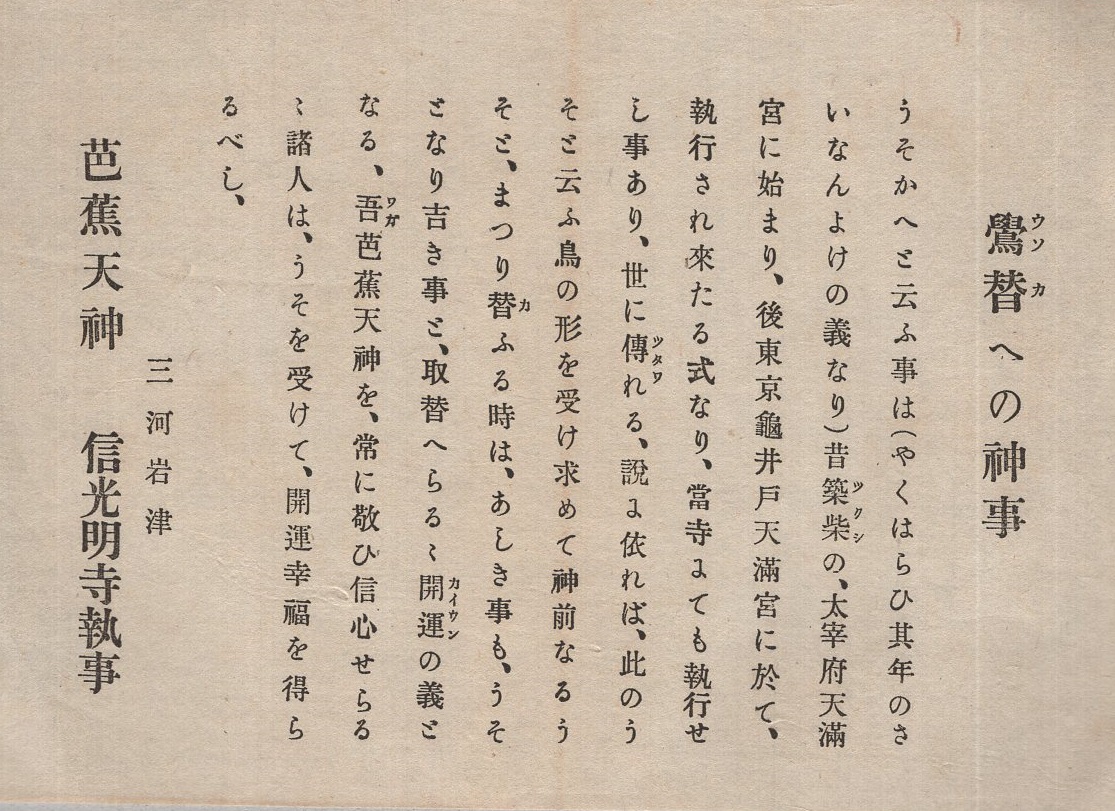 鷽替への神事
うそかへと云ふ事は(やくはらひ其年のさ
いなんよけの義なり)昔築柴の、太宰府天滿
宮に始まり、後東京龜井戸天滿宮に於て、
執行され來たる式なり、當寺ʎても執行せ
し事あり、世に傳れる、說ʎ依れば、此のう
そと云ふ鳥の形を受け求めて神前なるう
そと、まつり替ふる時は、あしき事も、うそ
となり吉き事と、取替へらるゝ開運の義と
なる、吾芭蕉天神を、常に敬ひ信心せらる
ゝ諸人は、うそを受けて、開運幸福を得ら
るべし、
三河岩津
芭蕉天神 信光明寺執事